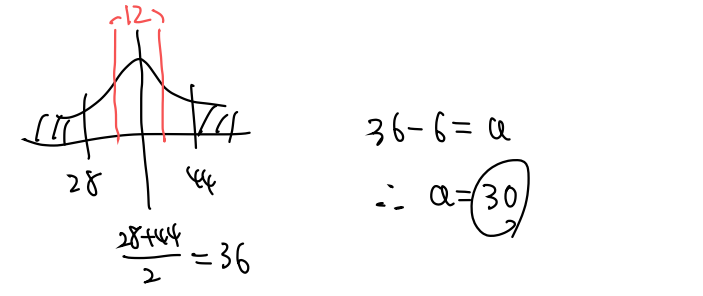 12
28 44
28+44/2 = 36
36-6=a
∴ a=30